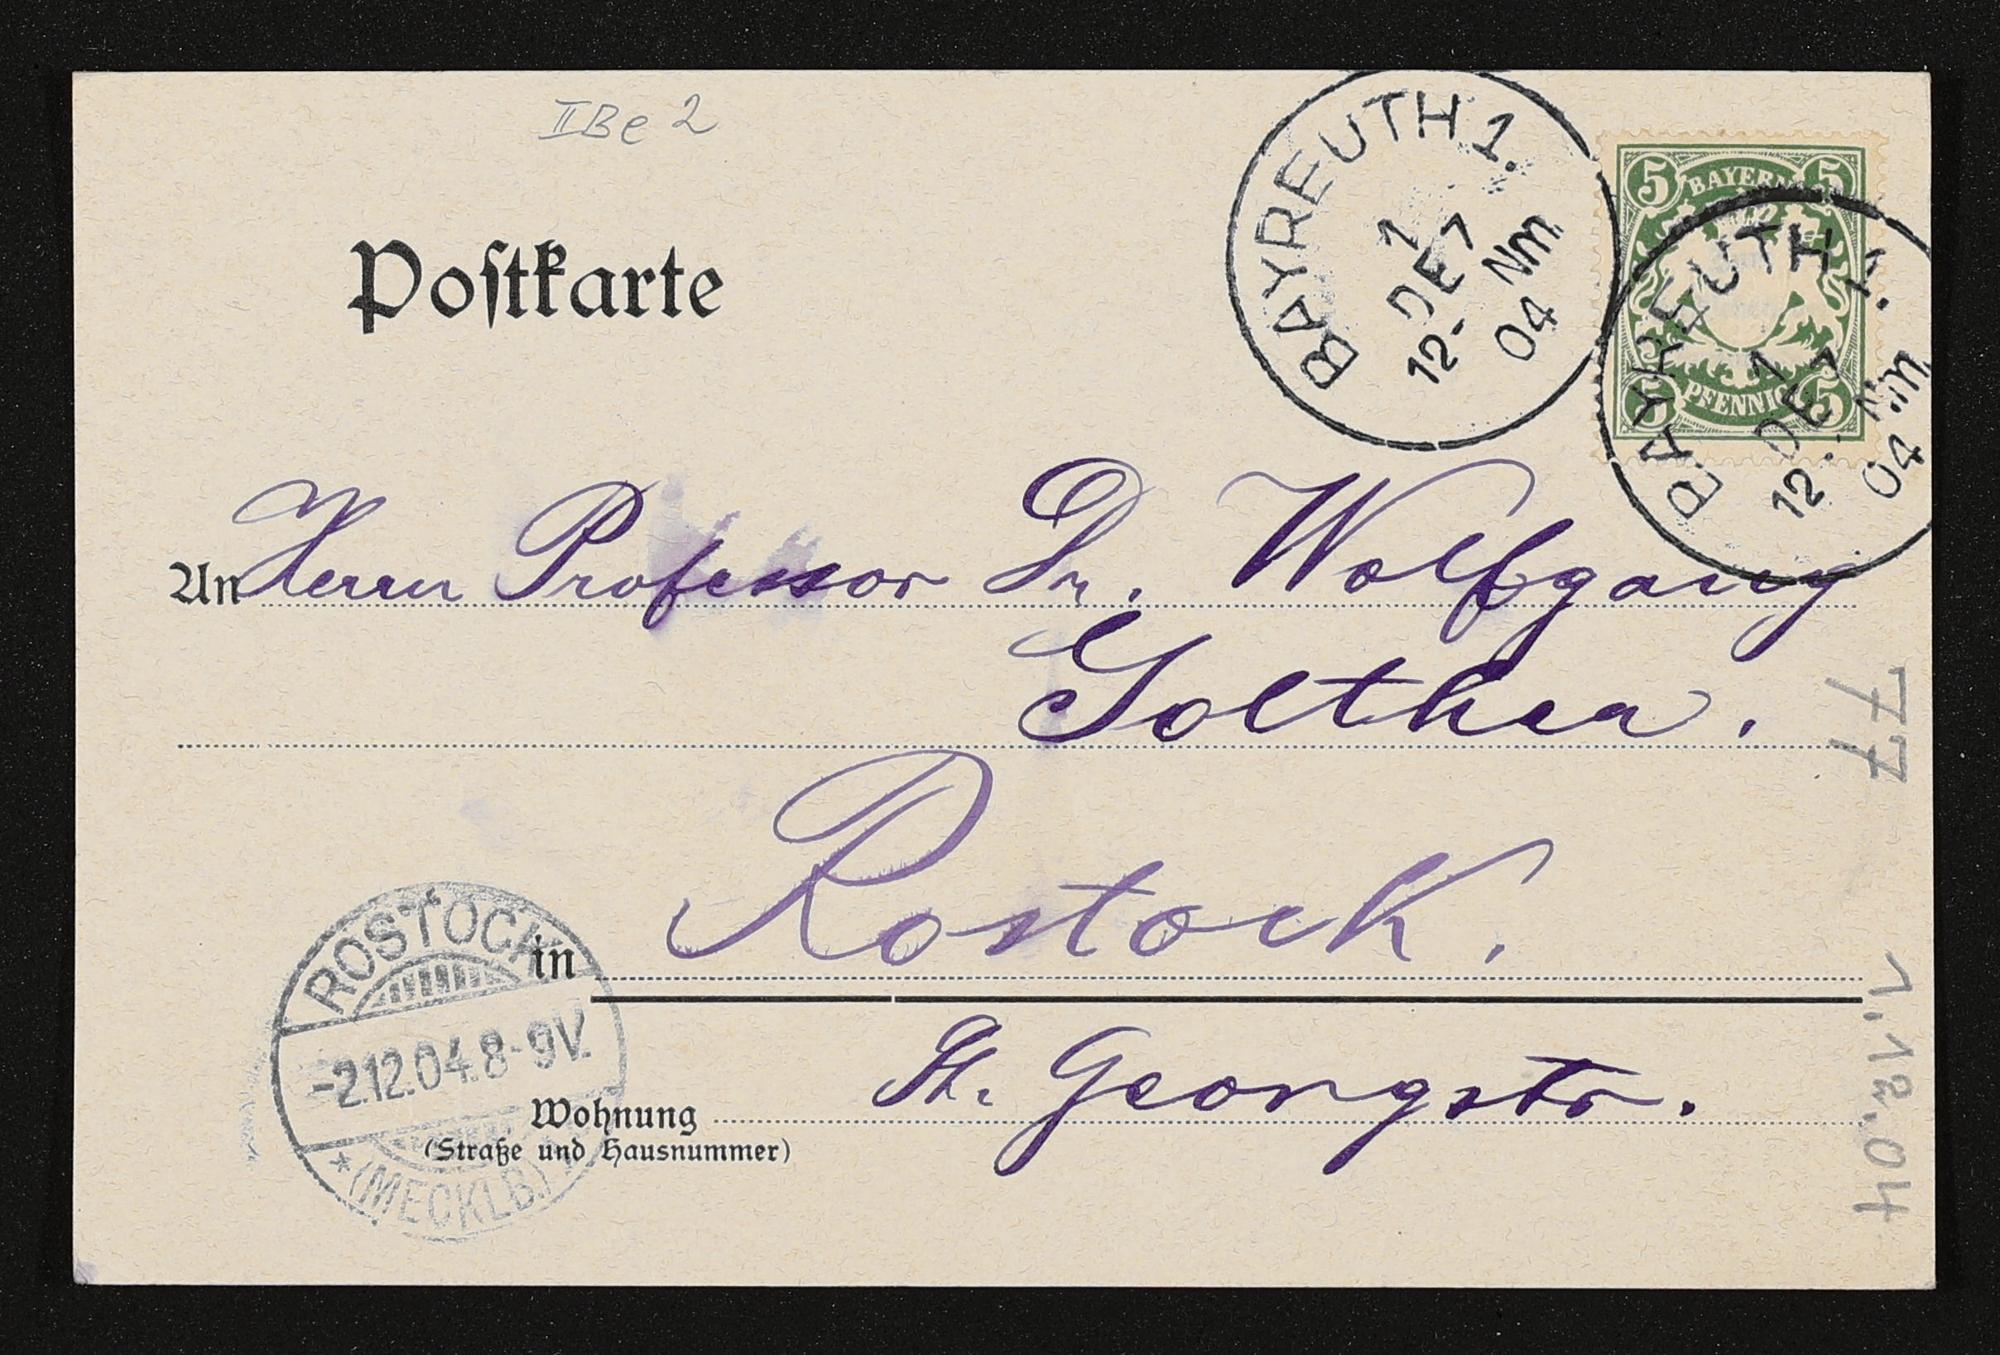 IIBe 2
Postkarte
BAYREUTH 1.
1
DE 7
12- Nm
04
5 BAYERN 5
5 PFENNIG 5
BAYREUTH 1.
1
DE 7
12- Nm
04
An Herrn Professor Dr. Wolfgang
Golther.
77
in Rostock.
ROSTOCK
-2.12.04.8-9V.
* (MECKLB.)
Wohnung St. Georgstr.
(Straße und Hausnummer)
1.12.04